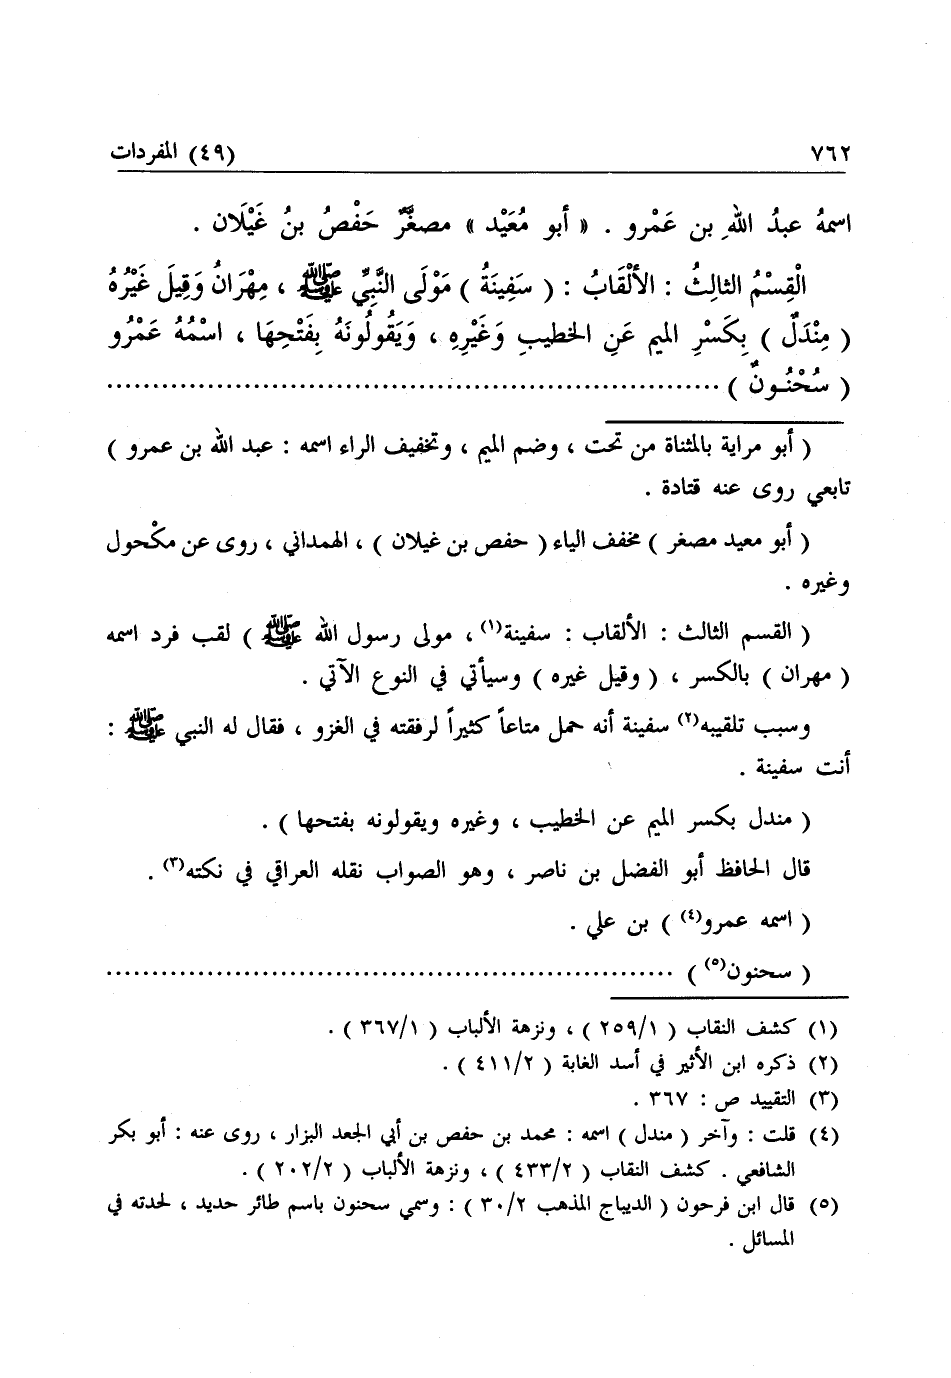 ٧٦٢ (٤٩) المفردات
اسمهُ عبدُ اللهِ بن عَمْرو . « أبو مُعَيْد » مصغَّرٌ حَفْصُ بنُ غَيْلَان .
الْقِسْمُ الثالِثُ : الأَلْقَابُ : ( سَفِينَةُ ) مَوْلَى النَّبِيِّ ﷺ ، مِهْرَانُ وَقِيلَ غَيْرُهُ
( مِنْدَلٌ ) بِكَسْرِ الميم عَنِ الخطيبِ وَغَيْرِهِ ، وَيَقُولُونَهُ بِفَتْحِهَا ، اسْمُهُ عَمْرُو
( سُحْنُونٌ ) ......................................................................
( أبو مراية بالمثناة من تحت ، وضم الميم ، وتخفيف الراء اسمه : عبد الله بن عمرو )
تابعي روى عنه قتادة .
( أبو معيد مصغر ) مخفف الياء ( حفص بن غيلان ) ، الهمداني ، روى عن مكْحول
وغيره .
( القسم الثالث : الألقاب : سفينة(١) ، مولى رسول الله ﷺ ) لقب فرد اسمه
( مهران ) بالكسر ، ( وقيل غيره ) وسيأتي في النوع الآتي .
وسبب تلقيبه(٢) سفينة أنه حمل متاعاً كثيراً لرفقته في الغزو ، فقال له النبي ﷺ :
أنت سفينة .
( مندل بكسر الميم عن الخطيب ، وغيره ويقولونه بفتحها ) .
قال الحافظ أبو الفضل بن ناصر ، وهو الصواب نقله العراقي في نكته(٣) .
( اسمه عمرو(٤) ) بن علي .
( سحنون(٥) ) ................................................................
(١) كشف النقاب ( ٢٥٩/١ ) ، ونزهة الألباب ( ٣٦٧/١ ) .
(٢) ذكره ابن الأثير في أسد الغابة ( ٤١١/٢ ) .
(٣) التقييد ص : ٣٦٧ .
(٤) قلت : وآخر ( مندل ) اسمه : محمد بن حفص بن أبي الجعد البزار ، روى عنه : أبو بكر
الشافعي . كشف النقاب ( ٤٣٣/٢ ) ، ونزهة الألباب ( ٢٠٢/٢ ) .
(٥) قال ابن فرحون ( الديباج المذهب ٣٠/٢ ) : وسمي سحنون باسم طائر حديد ، لحدته في
المسائل .